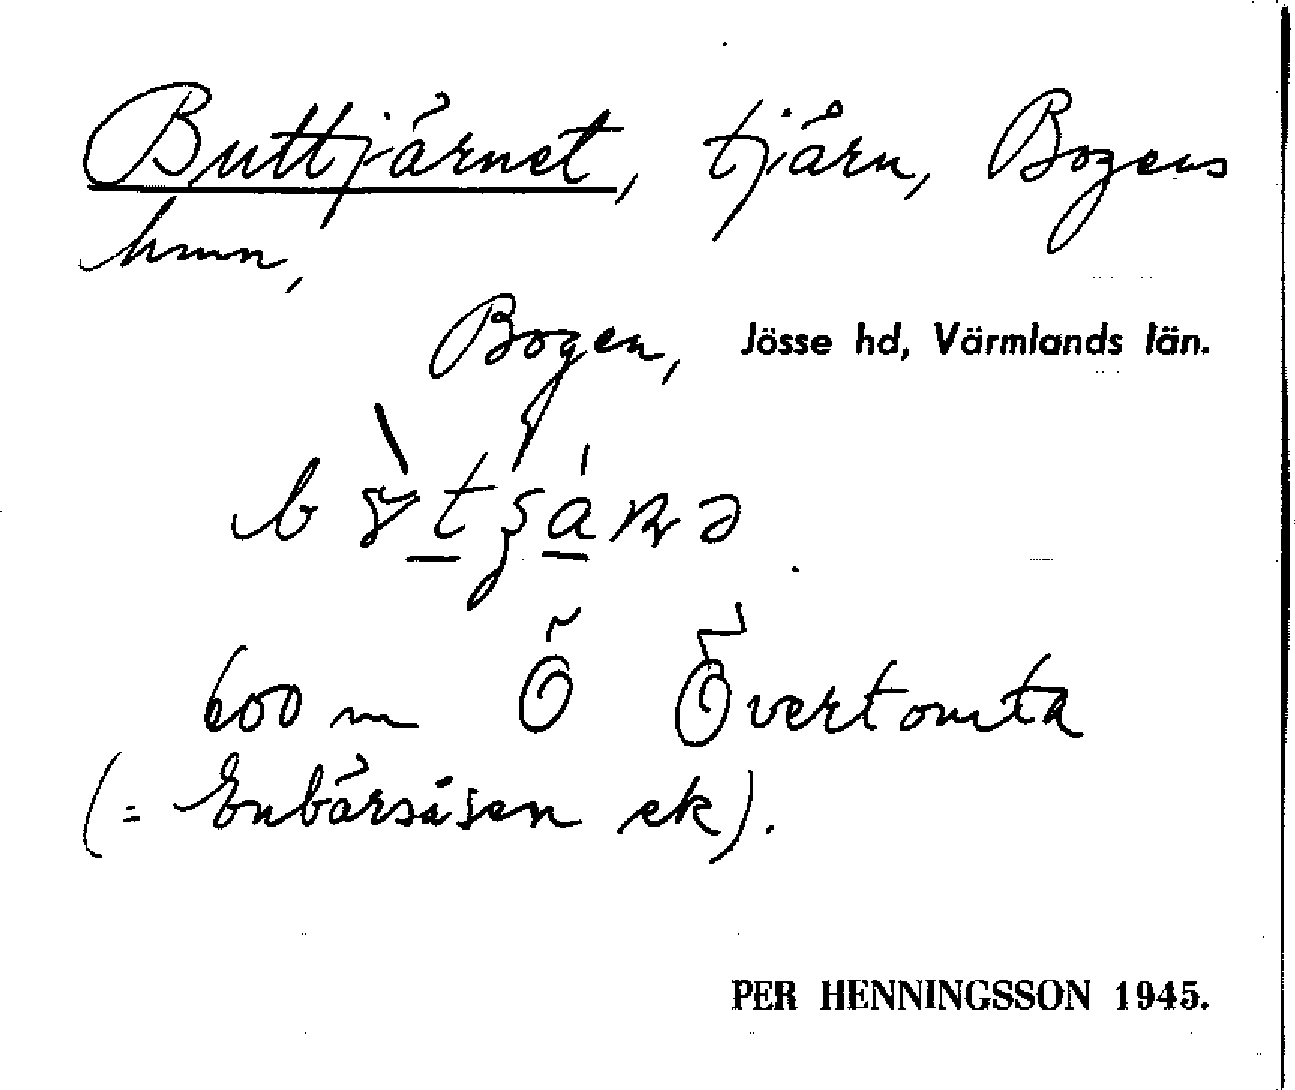 Buttjärnet, tjärn, Bogens
hmn,
Bogen, Jösse hd, Värmlands län.
600 m Ö Övertomta
(= Enbärsåsen ek).
PER HENNINGSSON 1945.